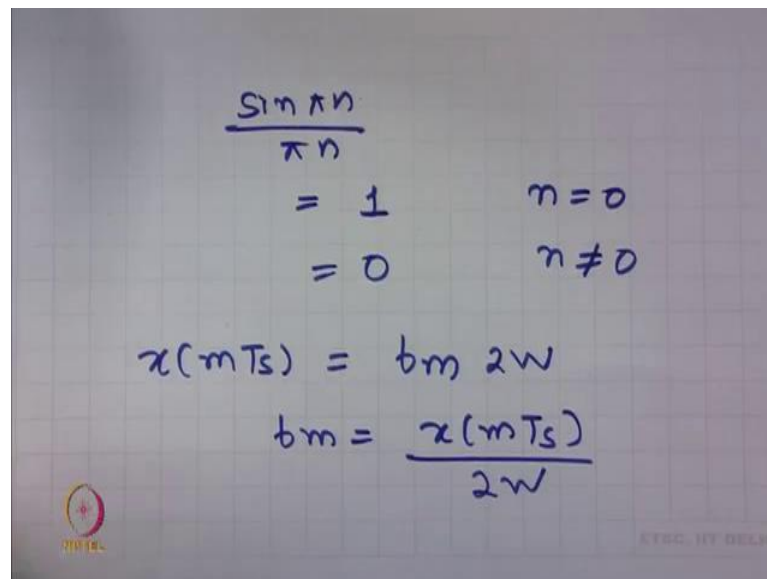 sin πn
πn
= 1 n = 0
= 0 n ≠ 0
x(mTs) = bm 2W
bm = x(mTs)
2W
NPTEL
ETSC, IIT DELHI